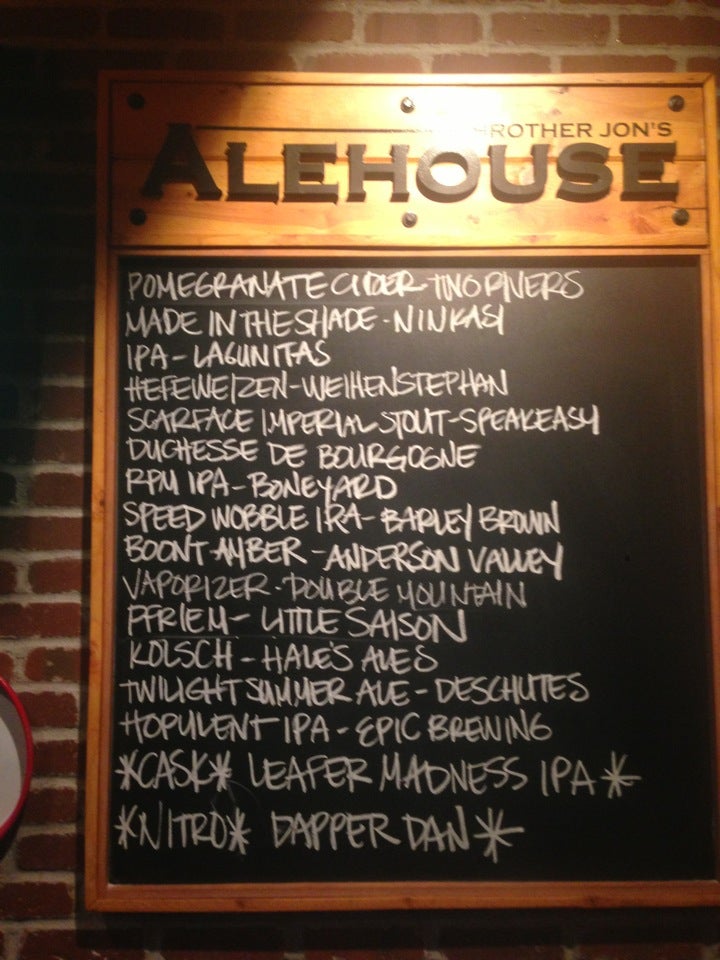 BROTHER JON'S
ALEHOUSE
POMEGRANATE CIDER-TWO RIVERS
MADE IN THE SHADE-NINKASI
IPA-LAGUNITAS
HEFEWEIZEN-WEIHENSTEPHAN
SCARFACE IMPERIAL STOUT-SPEAKEASY
DUCHESSE DE BOURGOGNE
RPM IPA-BONEYARD
SPEED WOBBLE IRA-BARLEY BROWN
BOONT AMBER-ANDERSON VALLEY
VAPORIZER-DOUBLE MOUNTAIN
PFRIEM-LITTLE SAISON
KOLSCH-HALE'S ALES
TWILIGHT SUMMER ALE-DESCHUTES
HOPULENT IPA-EPIC BREWING
*CASK* LEAFER MADNESS IPA*
*NITRO* DAPPER DAN*